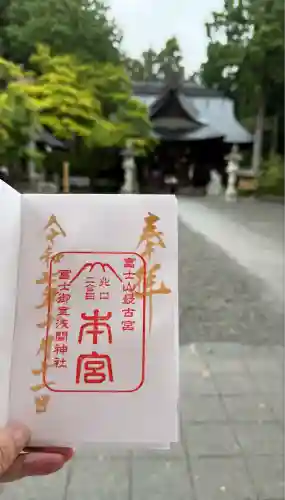 奉拝
富士山最古宮
北口
二合目
本宮
富士御室浅間神社
令和 年 月 日